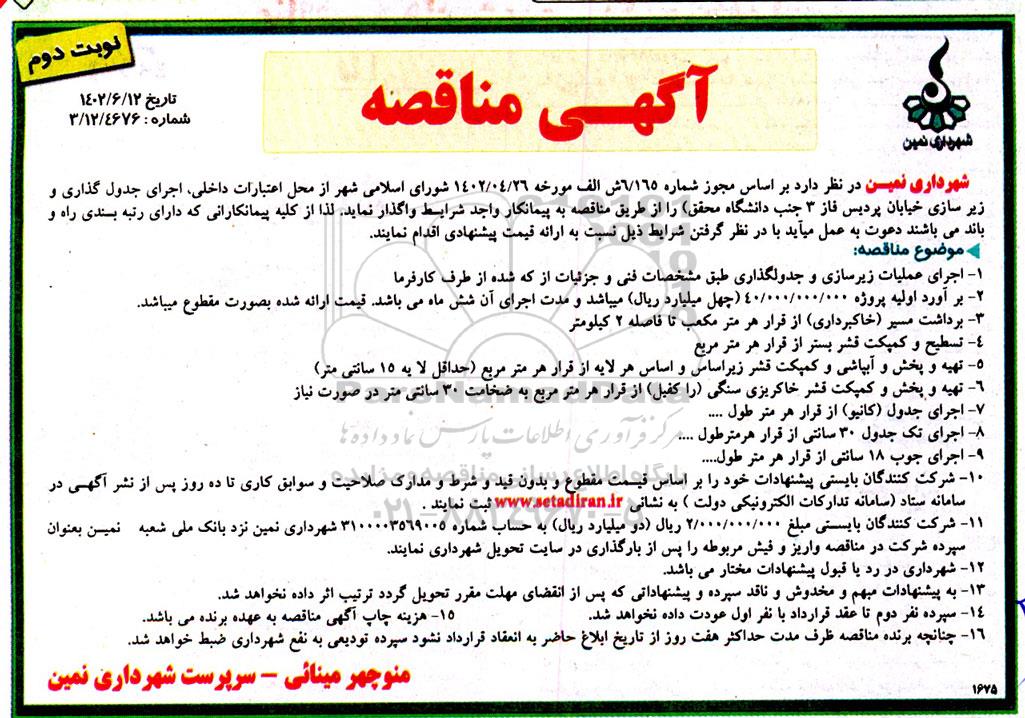 نوبت دوم
آگهی مناقصه
شهرداری نمین
تاریخ ۱۴۰۲/۶/۱۲
شماره : ۳/۱۲/٤٦٧٦
شهرداری نمین در نظر دارد بر اساس مجوز شماره ٦/۱٦٥ش الف مورخه ۱٤۰۲/۰٤/۲٦ شورای اسلامی شهر از محل اعتبارات داخلی، اجرای جدول گذاری و
زیر سازی خیابان پردیس فاز ۳ جنب دانشگاه محقق) را از طریق مناقصه به پیمانکار واجد شرایط واگذار نماید. لذا از کلیه پیمانکارانی که دارای رتبه بندی راه و
باند می باشند دعوت به عمل میآید با در نظر گرفتن شرایط ذیل نسبت به ارائه قیمت پیشنهادی اقدام نمایند.
موضوع مناقصه:
۱- اجرای عملیات زیرسازی و جدولگذاری طبق مشخصات فنی و جزئیات از که شده از طرف کارفرما
۲- بر آورد اولیه پروژه ٤۰/۰۰۰/۰۰۰/۰۰۰ (چهل میلیارد ریال) میباشد و مدت اجرای آن شش ماه می باشد. قیمت ارائه شده بصورت مقطوع میباشد.
۳- برداشت مسیر (خاکبرداری) از قرار هر متر مکعب تا فاصله ۲ کیلومتر
٤- تسطیح و کمپکت قشر بستر از قرار هر متر مربع
٥- تهیه و پخش و آبپاشی و کمپکت قشر زیراساس و اساس هر لایه از قرار هر متر مربع (حداقل لا یه ۱٥ سانتی متر)
٦- تهیه و پخش و کمپکت قشر خاکریزی سنگی (را کفیل) از قرار هر متر مربع به ضخامت ۳۰ سانتی متر در صورت نیاز
۷- اجرای جدول (کانیو) از قرار هر متر طول ....
۸- اجرای تک جدول ۳۰ سانتی از قرار هرمترطول ....
۹- اجرای جوب ۱۸ سانتی از قرار هر متر طول....
۱۰- شرکت کنندگان بایستی پیشنهادات خود را بر اساس قیمت مقطوع و بدون قید و شرط و مدارک صلاحیت و سوابق کاری تا ده روز پس از نشر آگهی در
سامانه ستاد (سامانه تدارکات الکترونیکی دولت ) به نشانی www.setadiran.ir ثبت نمایند .
۱۱- شرکت کنندگان بایستی مبلغ ۲/۰۰۰/۰۰۰/۰۰۰ ریال (دو میلیارد ریال) به حساب شماره ۳۱۰۰۰۰۳٥٦۹۰۰٥ شهرداری نمین نزد بانک ملی شعبه نمین بعنوان
سپرده شرکت در مناقصه واریز و فیش مربوطه را پس از بارگذاری در سایت تحویل شهرداری نمایند.
۱۲- شهرداری در رد یا قبول پیشنهادات مختار می باشد.
۱۳- به پیشنهادات مبهم و مخدوش و ناقد سپرده و پیشنهاداتی که پس از انقضای مهلت مقرر تحویل گردد ترتیب اثر داده نخواهد شد.
۱٤- سپرده نفر دوم تا عقد قرارداد با نفر اول عودت داده نخواهد شد. ۱٥- هزینه چاپ آگهی مناقصه به عهده برنده می باشد.
۱٦- چنانچه برنده مناقصه ظرف مدت حداکثر هفت روز از تاریخ ابلاغ حاضر به انعقاد قرارداد نشود سپرده تودیعی به نفع شهرداری ضبط خواهد شد.
منوچهر مینائی – سرپرست شهرداری نمین
۱۶۷۵
ParsNamadData
مرکز فرآوری اطلاعات پارس نماد داده ها
پایگاه اطلاع رسانی مناقصه و مزایده